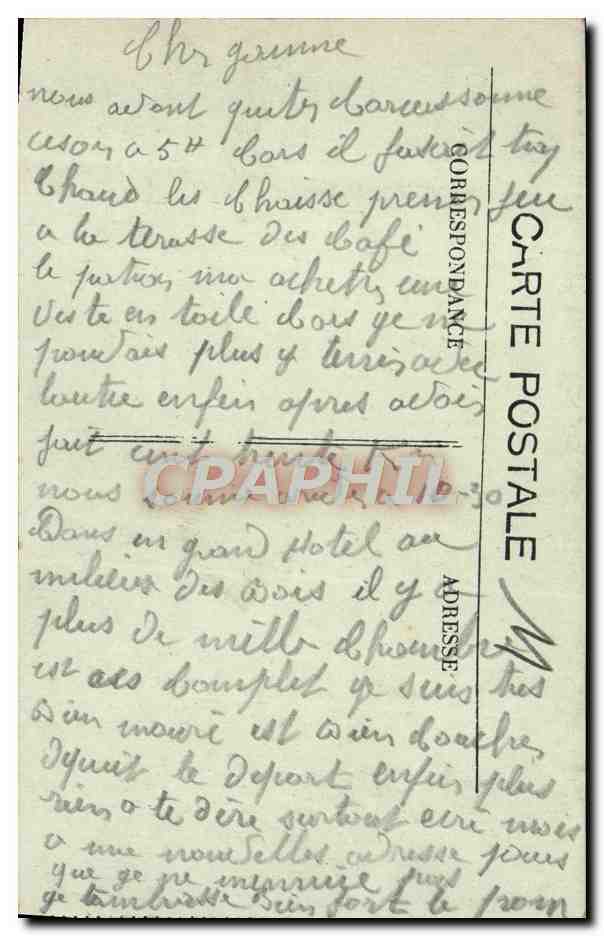 nous avont quites Carcassonne
a 5H Cars il fesait trop
Chaud les Chaisse prenes feu
a la terasse des Café
le patron ma achetes une
veste en toile Cars ge ne
pouvais plus y tenires avec
lautre enfin apres avois
fait cent trente Km
nous somme a 10-30
Dans un grand Hotel au
milieux des Bois il y a
plus de mille Chambre
est Complet ge suis tres
Bien nouri est Bien Couches
Dpuit le Depart enfin plus
rien a te dire surtout ecri mois
a une nouvelles adresse pour
que ge ne mennuie pas
ge tambrasse Bien fort
CARTE POSTALE
CORRESPONDANCE
ADRESSE
CPARHIL